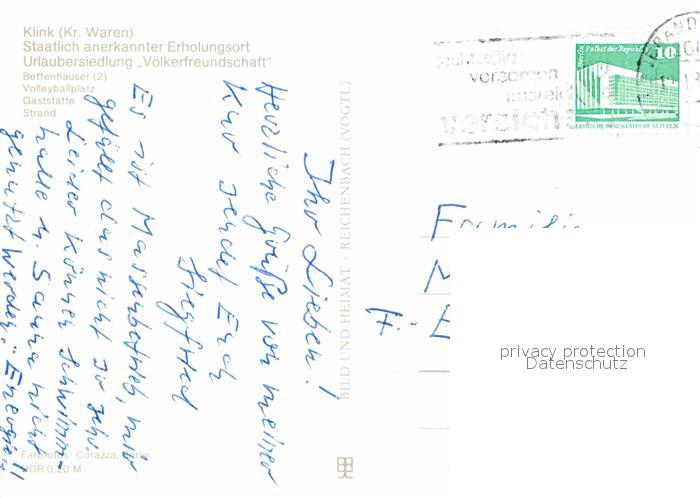 Klink (Kr. Waren)
Staatlich anerkannter Erholungsort
Urlaubersiedlung „Völkerfreundschaft“
Bettenhäuser (2)
Volleyballplatz
Gaststätte
Strand
Ihr Lieben!
Herzliche Grüße von meiner
Kur sendet Euch
Siegfried
Es ist Massenbetrieb, mir
gefällt das nicht so sehr.
Leider können Schwimm-
halle u. Sauna nicht
genutzt werden: Energie!!
Farbfotos: Corazza, Berlin
DDR 0,20 M
BILD UND HEIMAT · REICHENBACH (VOGTL)
rechtzeitig
vorsorgen
ausreich
versich
Berlin Palast der Republik
10
DEUTSCHE DEMOKRATISCHE REPUBLIK
Familie
M
E
privacy protection
Datenschutz